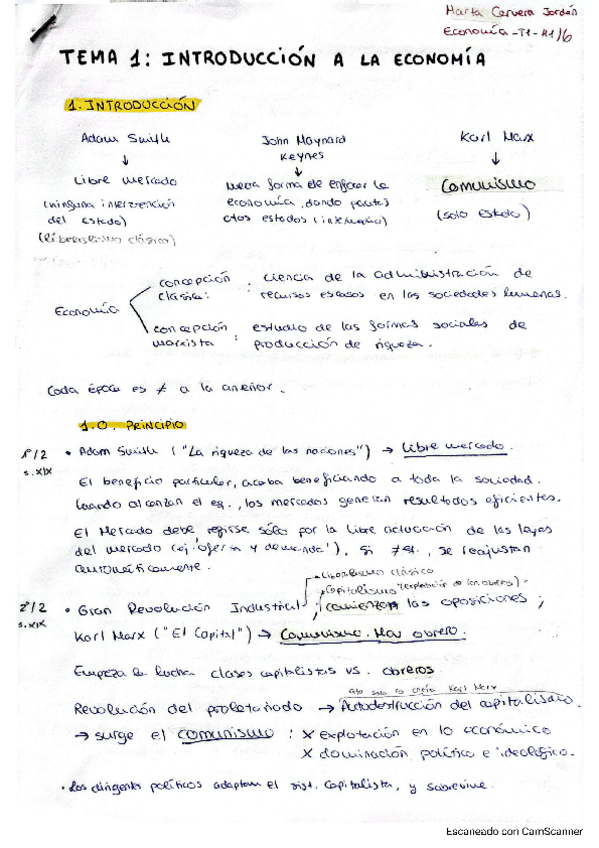 Marta Cervera Jordán
Economía-T1-A1/6
TEMA 1: INTRODUCCIÓN A LA ECONOMÍA
1. INTRODUCCIÓN
Adam Smith
↓
Libre mercado
(ninguna intervención
del Estado)
(liberalismo clásico)
John Maynard
Keynes
↓
Nueva forma de enfocar la
economía, dando pautas
a los estados (intermedio)
Karl Marx
↓
Comunismo
(solo Estado)
Economía
concepción clásica: ciencia de la administración de
recursos escasos en las sociedades humanas.
concepción marxista: estudio de las formas sociales de
producción de riqueza.
Cada época es ≠ a la anterior.
1.0. PRINCIPIO
1º/2 s.XIX
• Adam Smith ("La riqueza de las naciones") → Libre mercado.
El beneficio particular, acaba beneficiando a toda la sociedad.
Cuando alcanzan el eq., los mercados generan resultados eficientes.
El Mercado debe regirse sólo por la libre actuación de las leyes
del mercado (ej: 'oferta y demanda'), si ≠ eq., se reajustan
automáticamente.
2º/2 s.XIX
Liberalismo clásico
Capitalismo (explotación de los obreros).
• Gran Revolución Industrial: comienzan las oposiciones;
Karl Marx ("El Capital") → Comunismo. Mov obrero.
Empieza la lucha clases capitalistas vs. obreros.
Esto solo lo creía Karl Marx
Revolución del proletariado → Autodestrucción del capitalismo.
→ surge el comunismo: x explotación en lo económico
x dominación política e ideológica.
• Los dirigentes políticos adaptan el sist. Capitalista, y sobrevive.
Escaneado con CamScanner